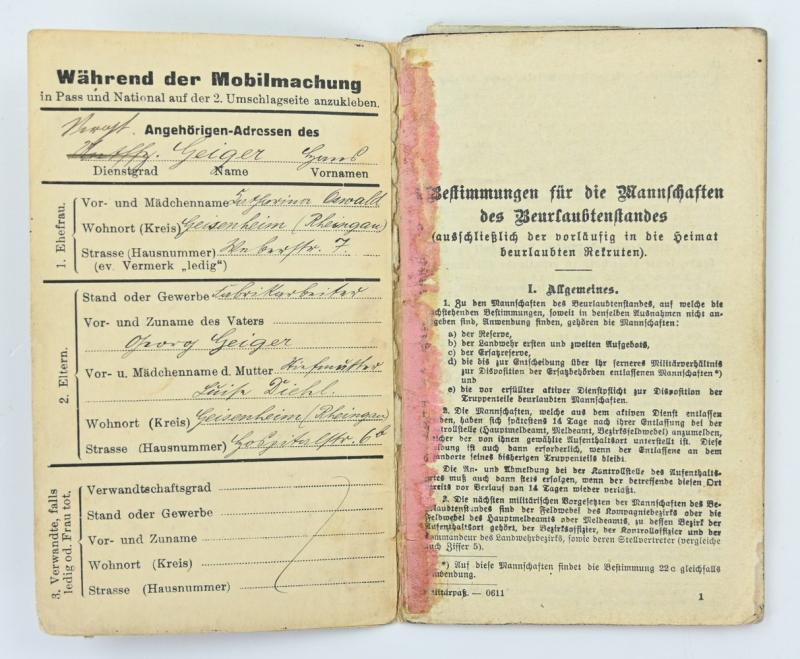 Während der Mobilmachung
in Pass und National auf der 2. Umschlagseite anzukleben.
Angehörigen-Adressen des
Geiger Hans
Dienstgrad Name Vornamen
1. Ehefrau.
Vor- und Mädchenname Katharina Oswald
Wohnort (Kreis) Geisenheim (Rheingau)
Strasse (Hausnummer) Weberstr. 7.
(ev. Vermerk „ledig“)
2. Eltern.
Stand oder Gewerbe Fabrikarbeiter
Vor- und Zuname des Vaters
Georg Geiger
Vor- u. Mädchenname d. Mutter Stiefmutter
Luise Diehl
Wohnort (Kreis) Geisenheim (Rheingau)
Strasse (Hausnummer) Hospitalstr. 6b
3. Verwandte, falls
ledig od. Frau tot.
Verwandtschaftsgrad
Stand oder Gewerbe
Vor- und Zuname
Wohnort (Kreis)
Strasse (Hausnummer)
Bestimmungen für die Mannschaften
des Beurlaubtenstandes
(ausschließlich der vorläufig in die Heimat
beurlaubten Rekruten).
I. Allgemeines.
1. Zu den Mannschaften des Beurlaubtenstandes, auf welche die
nachstehenden Bestimmungen, soweit in denselben Ausnahmen nicht an-
gegeben sind, Anwendung finden, gehören die Mannschaften:
a) der Reserve,
b) der Landwehr ersten und zweiten Aufgebots,
c) der Ersatzreserve,
d) die bis zur Entscheidung über ihr ferneres Militärverhältnis
zur Disposition der Ersatzbehörden entlassenen Mannschaften*)
und
e) die vor erfüllter aktiver Dienstpflicht zur Disposition der
Truppenteile beurlaubten Mannschaften.
2. Die Mannschaften, welche aus dem aktiven Dienst entlassen
werden, haben sich spätestens 14 Tage nach ihrer Entlassung bei der
Kontrollstelle (Hauptmeldeamt, Meldeamt, Bezirksfeldwebel) anzumelden,
welcher der von ihnen gewählte Aufenthaltsort unterstellt ist. Diese
Meldung ist auch dann erforderlich, wenn der Entlassene an dem
Standorte seines bisherigen Truppenteils bleibt.
Die An- und Abmeldung bei der Kontrollstelle des Aufenthalts-
ortes muß auch dann stets erfolgen, wenn der betreffende diesen Ort
bereits vor Verlauf von 14 Tagen wieder verläßt.
Die nächsten militärischen Vorgesetzten der Mannschaften des Be-
urlaubtenstandes sind der Feldwebel des Kompagniebezirks oder die
Feldwebel des Hauptmeldeamts oder Meldeamts, zu dessen Bezirk der
Aufenthaltsort gehört, der Bezirksoffizier, der Kontrolloffizier und der
Kommandeur des Landwehrbezirks, sowie deren Stellvertreter (vergleiche
auch Ziffer 5).
*) Auf diese Mannschaften findet die Bestimmung 22c gleichfalls
Anwendung.
Militärpaß. — 0611
1